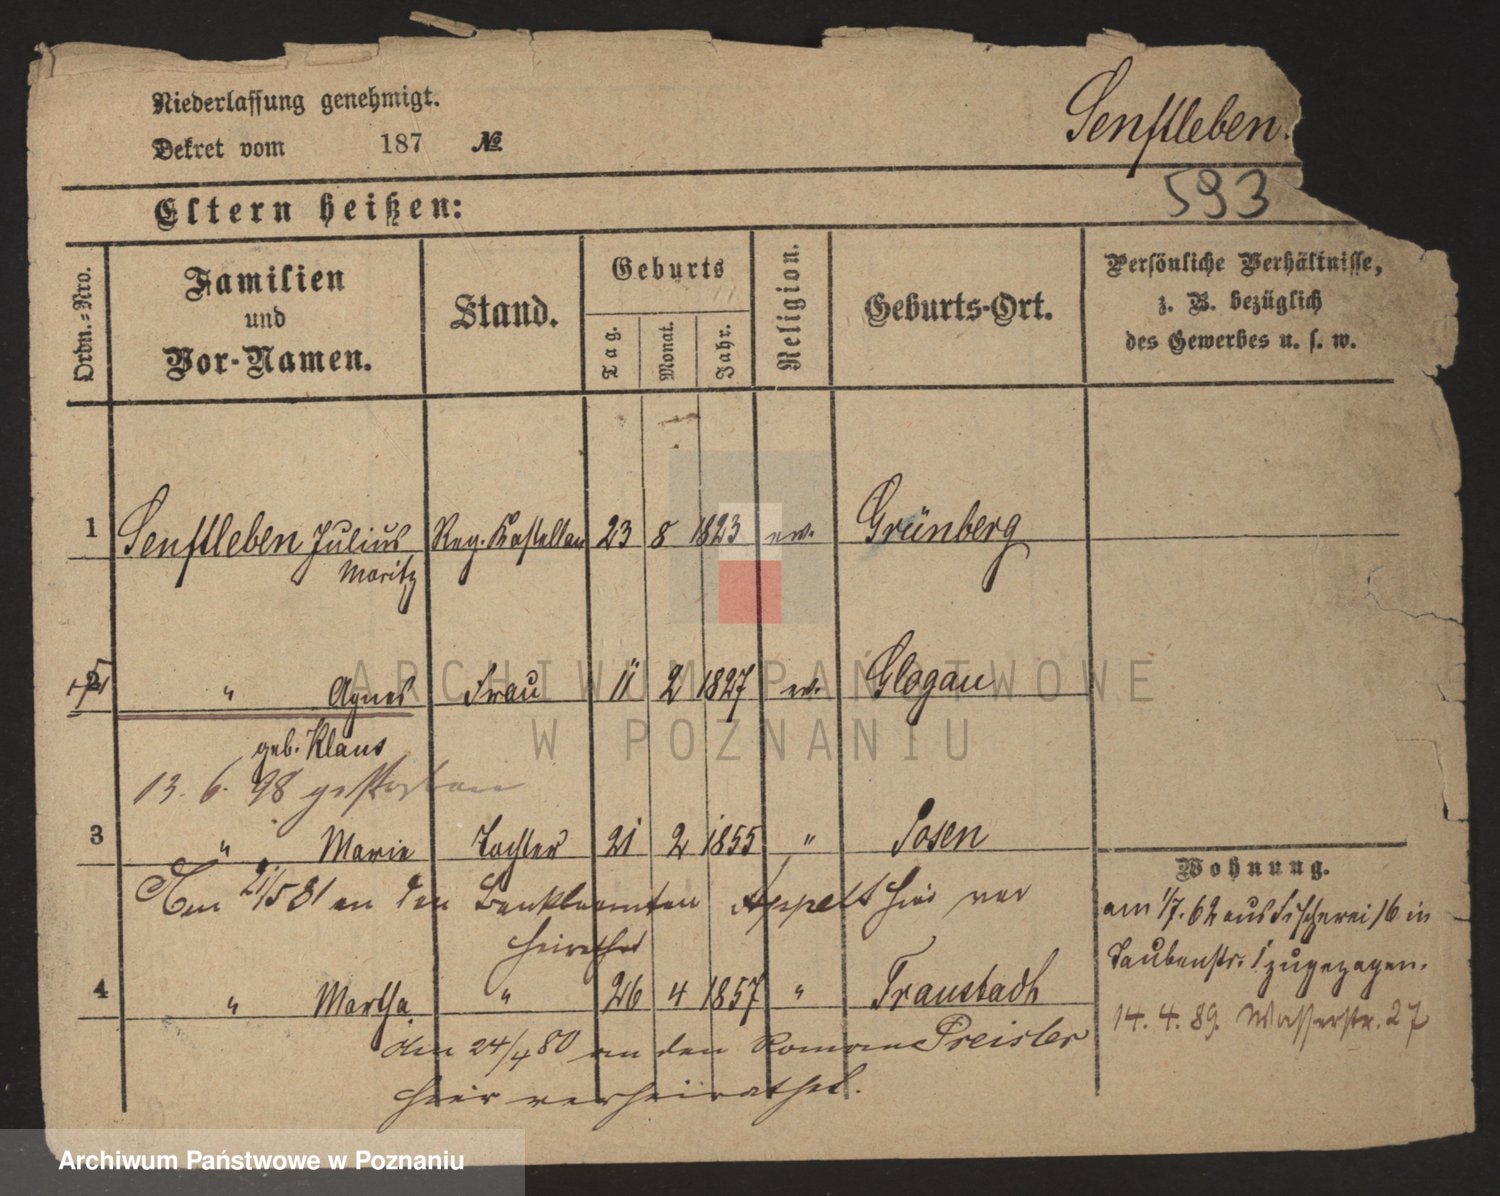 Niederlassung genehmigt.
Dekret vom 187 №
Senftleben.
593
Eltern heißen:
Ordn.-Nro.
Familien
und
Vor-Namen.
Stand.
Geburts
Tag.
Monat.
Jahr.
Religion.
Geburts-Ort.
Persönliche Verhältnisse,
z. B. bezüglich
des Gewerbes u. s. w.
1 Senftleben Julius Reg. Kastellan 23 8 1823 ev. Grünberg
Moritz
2 " Agnes Frau 11 2 1827 ev. Glogau
geb. Klaus
13. 6. 98 gestorben
3 " Marie Tochter 21 2 1855 " Posen
Am 21/5 81 an den Bankbeamten Appelt hier ver
heirathet
4 " Martha " 26 4 1857 " Fraustadt
den 24/4 80 an den Preisler
hier verheirathet.
Wohnung.
am 1/7. 62 aus Fischerei 16 in
Taubenstr. 1 zugezogen.
14. 4. 89. Wasserstr. 27
ARCHIWUM PAŃSTWOWE
W POZNANIU
Archiwum Państwowe w Poznaniu